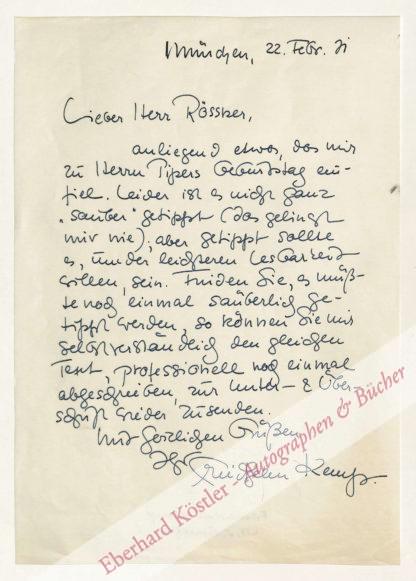 München, 22. Febr. 71
Lieber Herr Rössner,
anliegend etwas, das mir
zu Herrn Pipers Geburtstag ein-
fiel. Leider ist es nicht ganz
"sauber" getippt (das gelingt
mir nie), aber getippt sollte
es, um der leichteren Lesbarkeit
willen, sein. Finden Sie, es müß-
te noch einmal säuberlich ge-
tippt werden, so können Sie mir
selbstverständlich den gleichen
Text, professionell noch einmal
abgeschrieben, zur Unter- & Über-
schrift wieder zusenden.
Mit herzlichen Grüßen
Ihr
Friedhelm Kemp.
Eberhard Köstler - Autographen & Bücher